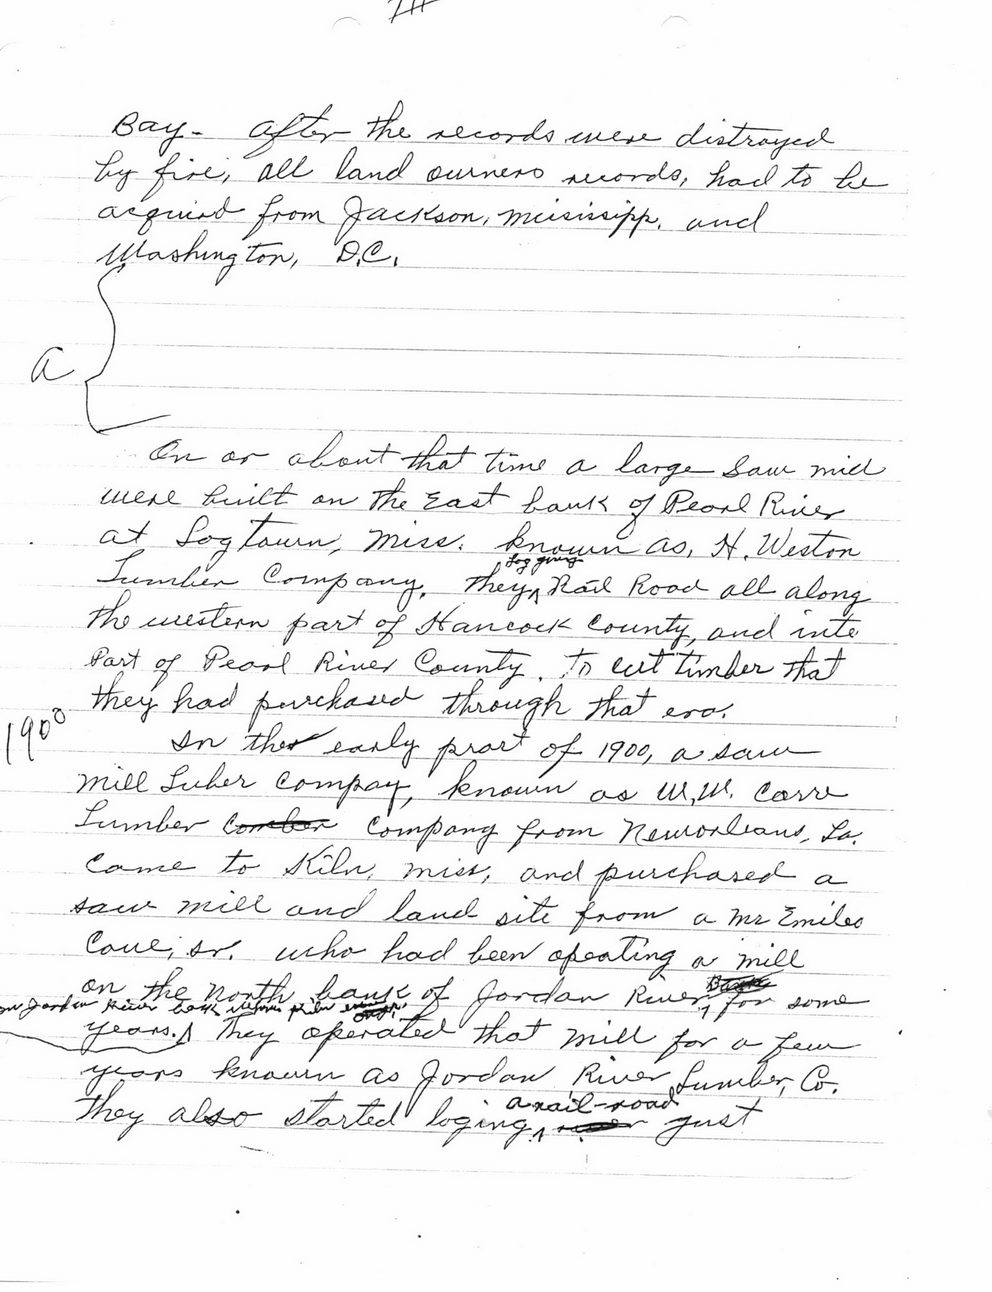 III
Bay - After the records were distroyed
by fire, all land owners records, had to be
acquird from Jackson, Mississipp. and
Washington, D.C.
a
On or about that time a large Saw mid
were built on the East bank of Pearl River
at Logtown, Miss. known as, H. Weston
log ging
Lumber Company. they ^ Rail Road all along
the western part of Hancock County, and into
Part of Pearl River County. To cut timber that
they had purchased through that era.
1900
In the early prart of 1900, a saw
mill Luber compay, known as W.W. Carre
Lumber Comber Company from Neworleans, La.
Came to Kiln, Miss, and purchased a
saw mill and land site from a Mr Emiles
Caue, sr. who had been opeating a mill
on the North bank of Jordan River, for some
Jordan River
years. ^ They operated that mill for a few
years known as Jordan River Lumber, Co.
a rail-road
they also started loging ^ just